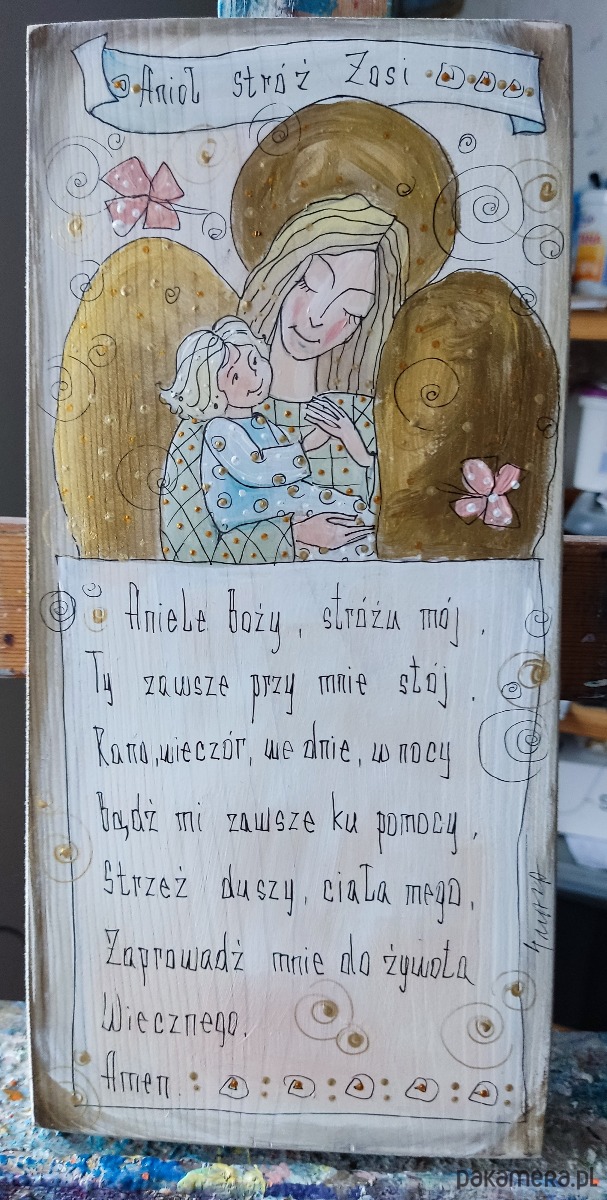 Anioł stróż Zosi
Aniele Boży, stróżu mój.
Ty zawsze przy mnie stój.
Rano, wieczór, we dnie, w nocy
Bądź mi zawsze ku pomocy,
Strzeż duszy, ciała mego,
Zaprowadź mnie do żywota
Wiecznego.
Amen.
pakamera.pl